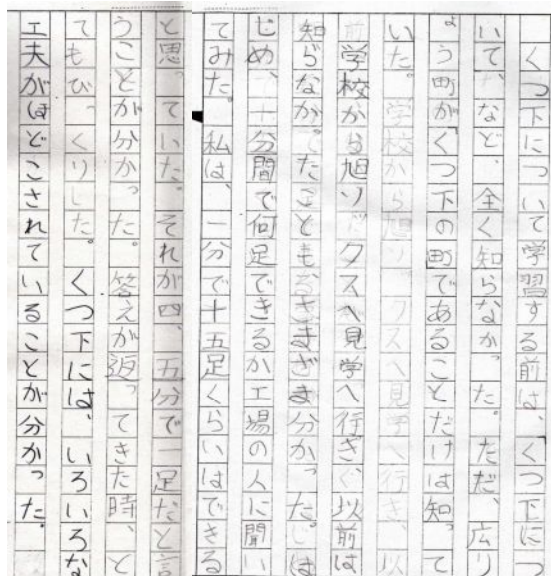 くつ下について学習する前は、くつ下につ
いて、など、全く知らなかった。ただ、広り
ょう町がくつ下の町であることだけは知って
いた。学校から旭ソックスへ見学へ行き、以
前学校から旭ソックスへ見学へ行き、以前は
知らなかったこともさまざま分かった。は
じめ、十分間で何足できるか工場の人に聞い
てみた。私は、一分で十五足くらいはできる
と思っていた。それが四、五分で一足だと言
うことが分かった。答えが返ってきた時、と
てもびっくりした。くつ下には、いろいろな
工夫がほどこされていることが分かった。